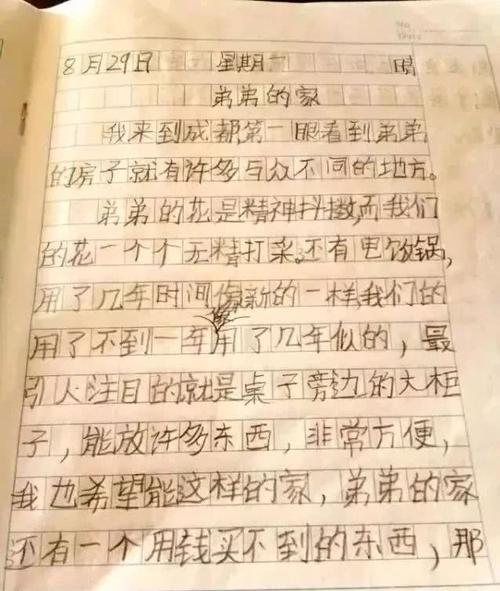 8月29日 星期一 晴
弟弟的家
我来到成都第一眼看到弟弟
的房子就有许多与众不同的地方。
弟弟的花是精神抖擞,而我们
的花一个个无精打采。还有电饭锅,
用了几年时间像新的一样,我们的
用了不到一年像用了几年似的，最
引人注目的就是桌子旁边的大柜
子，能放许多东西，非常方便，
我也希望能这样的家，弟弟的家
还有一个用钱买不到的东西，那